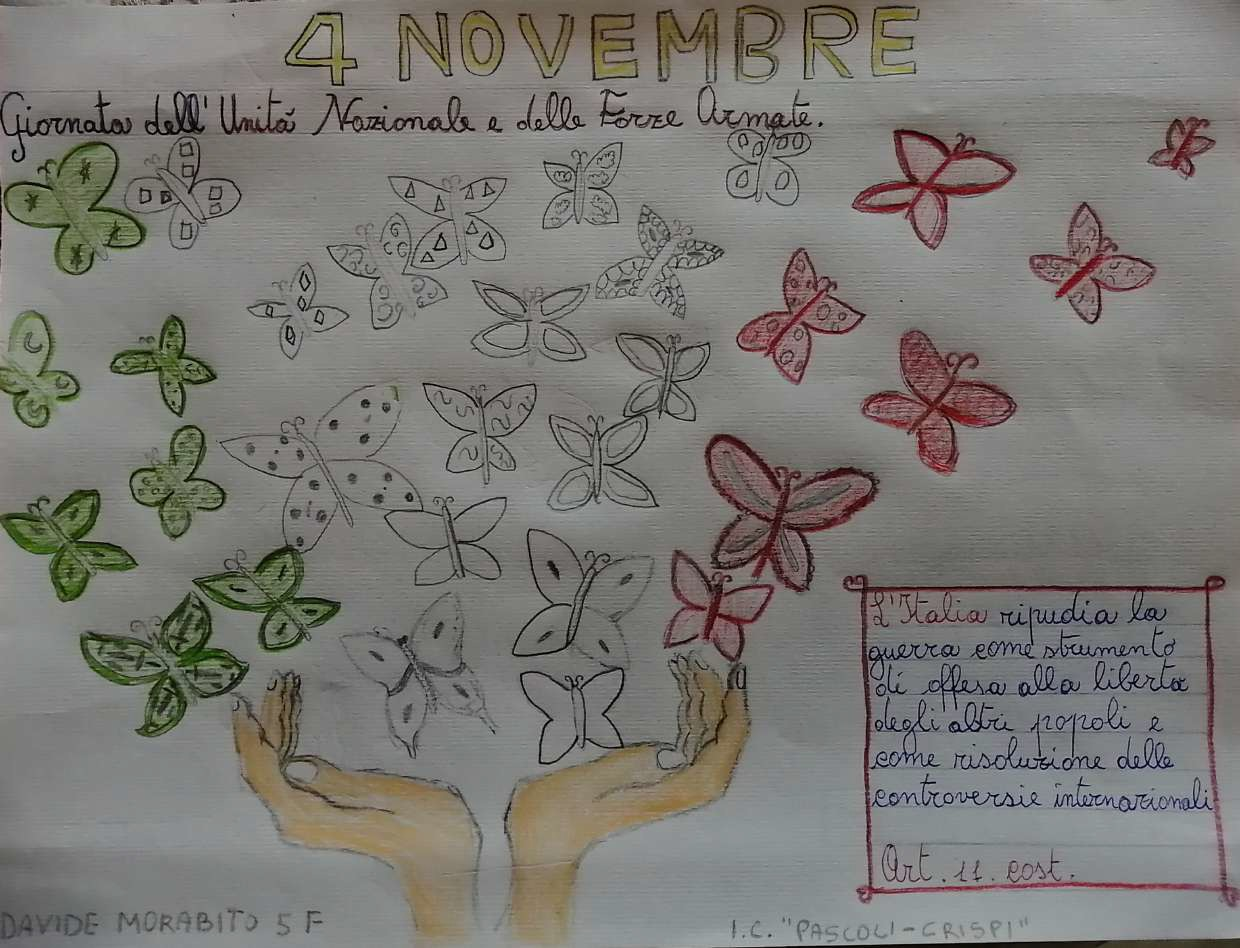 4 NOVEMBRE
Giornata dell'Unità Nazionale e delle Forze Armate.
L'Italia ripudia la
guerra come strumento
di offesa alla libertà
degli altri popoli e
come risoluzione delle
controversie internazionali
Art. 11. cost.
DAVIDE MORABITO 5 F
I.C. "PASCOLI-CRISPI"